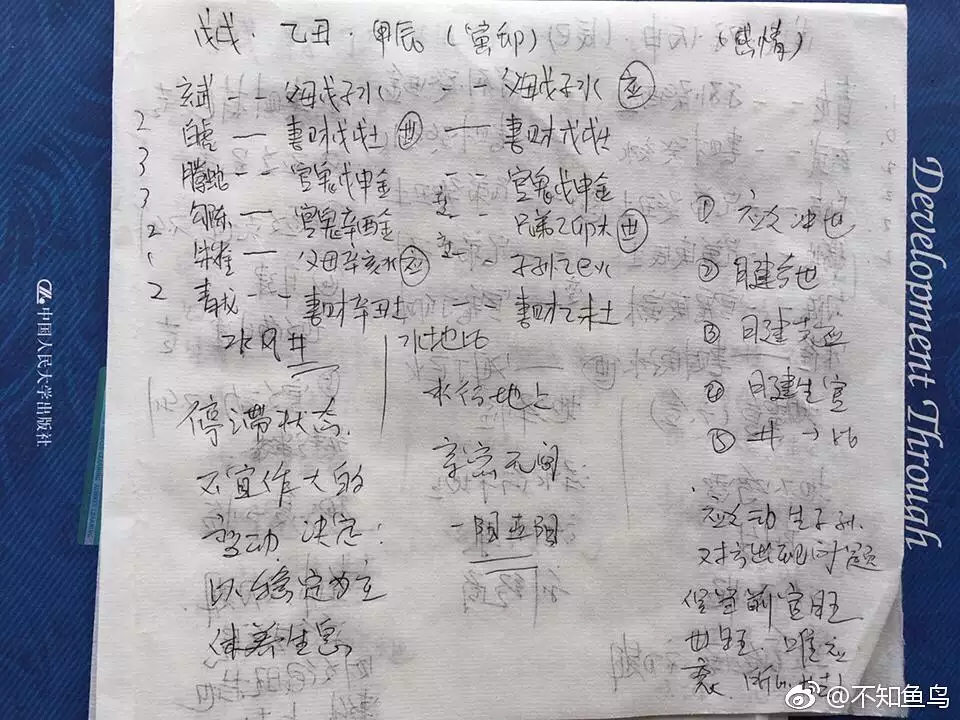 戊戌·乙丑·甲辰(寅卯) (感情)
玄武 -- 父母戊子水 -- 父母戊子水 应
2 白虎 — 妻财戊戌土 世 — 妻财戊戌土
3 腾蛇 -- 官鬼戊申金 -- 官鬼戊申金
3 勾陈 — 官鬼辛酉金 -- 兄弟乙卯木 世
2 朱雀 — 父母辛亥水 应 -- 子孙乙巳火
2 青龙 -- 妻财辛丑土 妻财乙未土
水风井
水地比
停滞状态
不宜作大的
变动 决定:
以稳定为主
休养生息
水行地上
亲密无间
① 应爻冲世
② 日建合世
③ 日建克应
④ 日建生官
⑤ 井→比
应爻动生子孙
对方出现问题
世旺 唯应
衰
中国人民大学出版社
Development Through
@不知鱼鸟